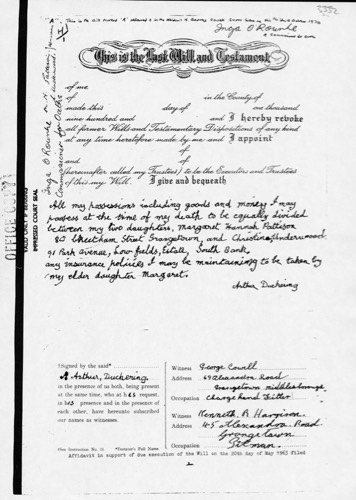 "A" This is the Will marked 'A' referred to in the Affidavit of George Cowell sworn before me this day of October 1970
Inga O'Rourke
A Commissioner for Oaths
5352
"H"
Inga O'Rourke
Commissioner for Oaths
OFFICE COPY
VALID ONLY IF BEARING
IMPRESSED COURT SEAL
This is the Last Will and Testament
of me
of in the County of
made this day of one thousand
nine hundred and and I hereby revoke
all former Wills and Testamentary Dispositions of any kind
at any time heretofore made by me and I appoint
of
and of
(hereinafter called my Trustees) to be the Executors and Trustees
of this my Will. I give and bequeath
All my possessions including goods and money I may
possess at the time of my death to be equally divided
between my two daughters, Margaret Hannah Pattison
80 Cheetham Street Grangetown, and Christina Underwood
91 Park avenue, Low fields, Estate, South Bank,
any insurance policies I may be maintaining to be taken by
my elder daughter Margaret.
Arthur Duchering
Signed by the said*
A Arthur, Duchering.
in the presence of us both, being present
at the same time, who at his request,
in his presence and in the presence of
each other, have hereunto subscribed
our names as witnesses.
Witness George Cowell
Address 49 Alexandra Road
Grangetown Middlesbrough
Occupation Charge hand Fitter
Witness Kenneth B Harrison.
Address 45 Alexandra Road
Grangetown
Occupation
See Instruction No. 11 *Testator's Full Name.
Affidavit in support of due execution of the Will on the 20th day of May 1963 filed